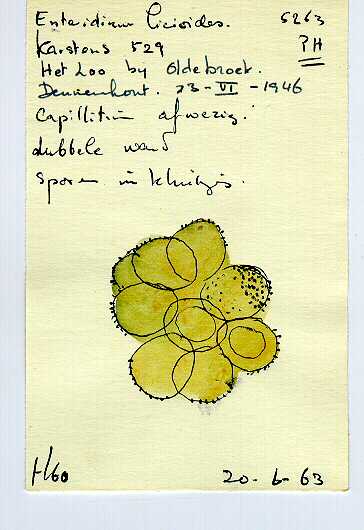 Enteridium licioides. 5263
Karstens 529 PH
Het Loo by Oldebroek.
Dennenhout. 23-VI-1946
Capillitium afwezig.
dubbele wand
sporen in kluitjes.
H60 20-6-63